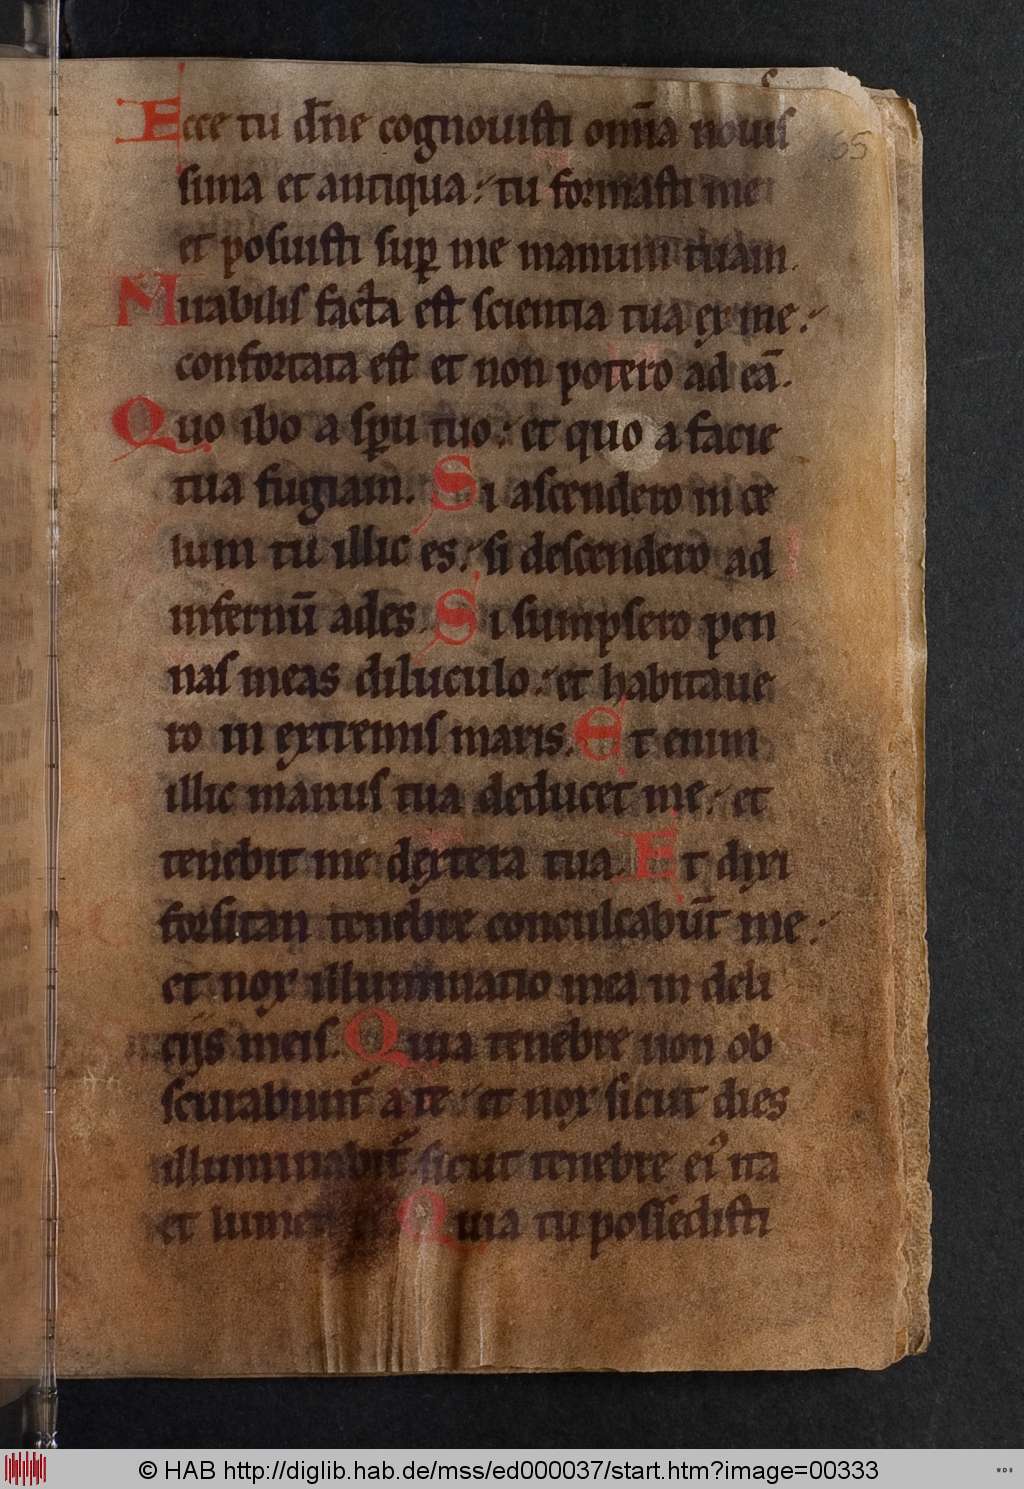 165
Ecce tu dn̄e cognouisti om̄ia nouis
sima et antiqua: tu formasti me
et posuisti sup̱ me manum tuam.
Mirabilis facta est scientia tua ex me:
confortata est et non potero ad eā.
Quo ibo a sp̄u tuo: et quo a facie
tua fugiam. Si ascendero in ce
lum tu illic es: si descendero ad
infernū ades. Si sumpsero pen
nas meas diluculo: et habitaue
ro in extremis maris. Et enim
illic manus tua deducet me: et
tenebit me dextera tua. Et dixi
forsitan tenebre conculcabūt me:
et nox illuminatio mea in deli
cijs meis. Quia tenebre non ob
scurabunt̄ a te: et nox sicut dies
illuminabit̄ sicut tenebre eiꝰ ita
et lumen ei. Quia tu possedisti
© HAB http://diglib.hab.de/mss/ed000037/start.htm?image=00333